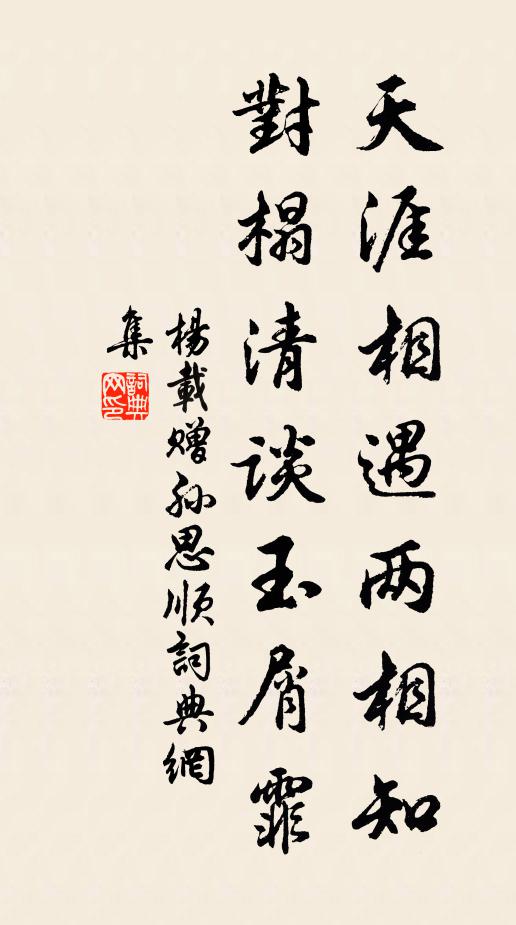 天涯相遇两相知
對榻清談玉屑霏
楊載贈孙思順詞典網
集
詞典
网印